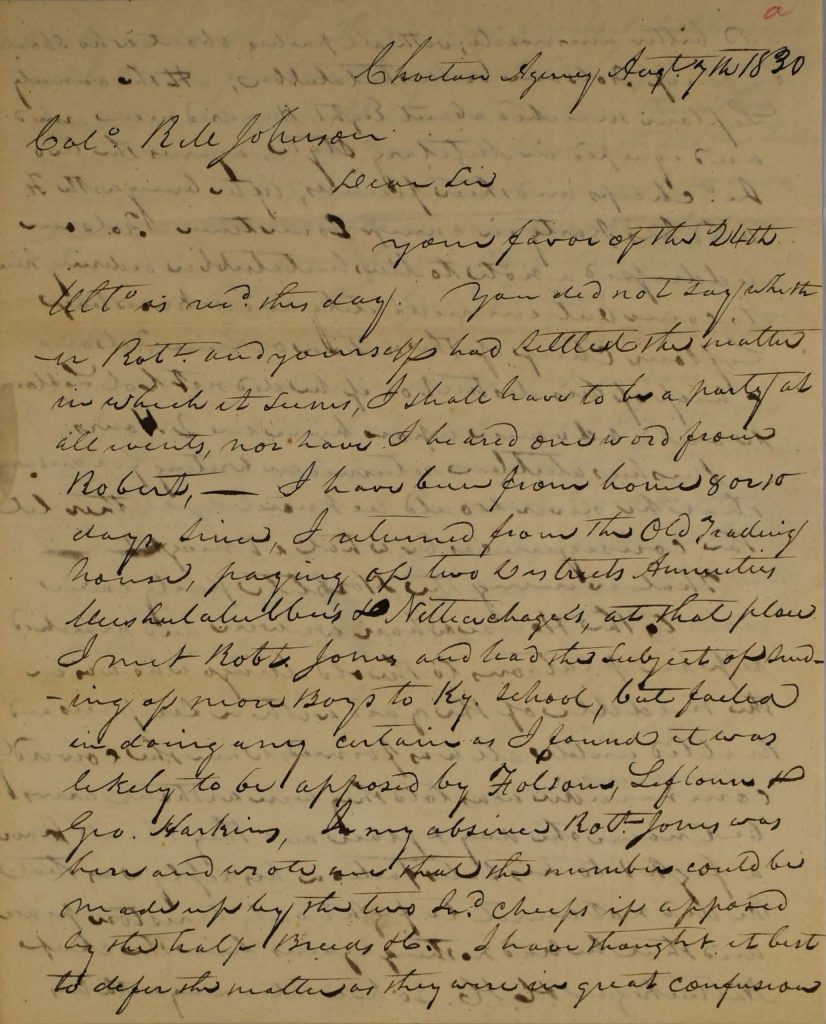 a
Choctaw Agency Augt. 7th 1830
Colo. R M Johnson
Dear Sir
your favor of the 24th
Ulto is recd. this day. You did not say wheth
-er Robt. and yourself had settled the matter
in which it seems, I shall have to be a party at
all events, nor have I heared one word from
Robert, — I have been from home 8 or 10
days since, I returned from the Old Trading
house, paying of two Districts Annuities
Mushulatubbees & Nittuchagees, at that place
I met Robt. Jones and had the subject of send-
-ing of more Boys to Ky. School, but failed
in doing any certain as I found it was
likely to be apposed by Folsom, Leflowr &
Geo. Harkins, In my absince Robt. Jones was
here and wrote me that the number could be
made up by the two Ind. cheefs if apposed
by the half Breeds &c. I have thought it best
to defer the matter as they were in great confusion